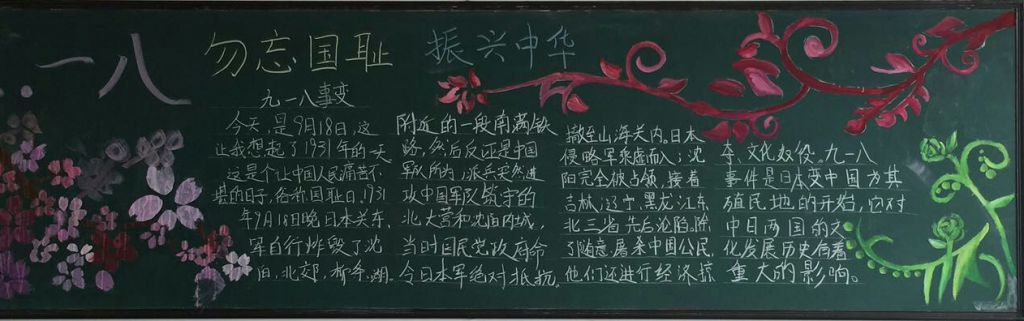 一八
勿忘国耻 振兴中华
九一八事变
今天,是9月18日,这
让我想起了1931年的一天
这是个让中国人民痛苦不
堪的日子,名称国耻日,1931
年9月18日晚日本关东
军自行炸毁了沈
阳,北郊,湖
附近的一段南满铁
路,然后反诬是中国
军队所为,派兵突然进
攻中国军队驻守的
北大营和沈阳内城,
当时国民党政府命
令日本军绝对抵抗,
撤至山海关内。日本
侵略军乘虚而入;沈
阳完全被占领,接着
吉林,辽宁,黑龙江东
北三省先后沦陷。除
了随意屠杀中国公民,
他们还进行经济掠
夺,文化奴役。九一八
事件是日本变中国为其
殖民地的开始,它对
中日两国的文
化发展历史有着
重大的影响。